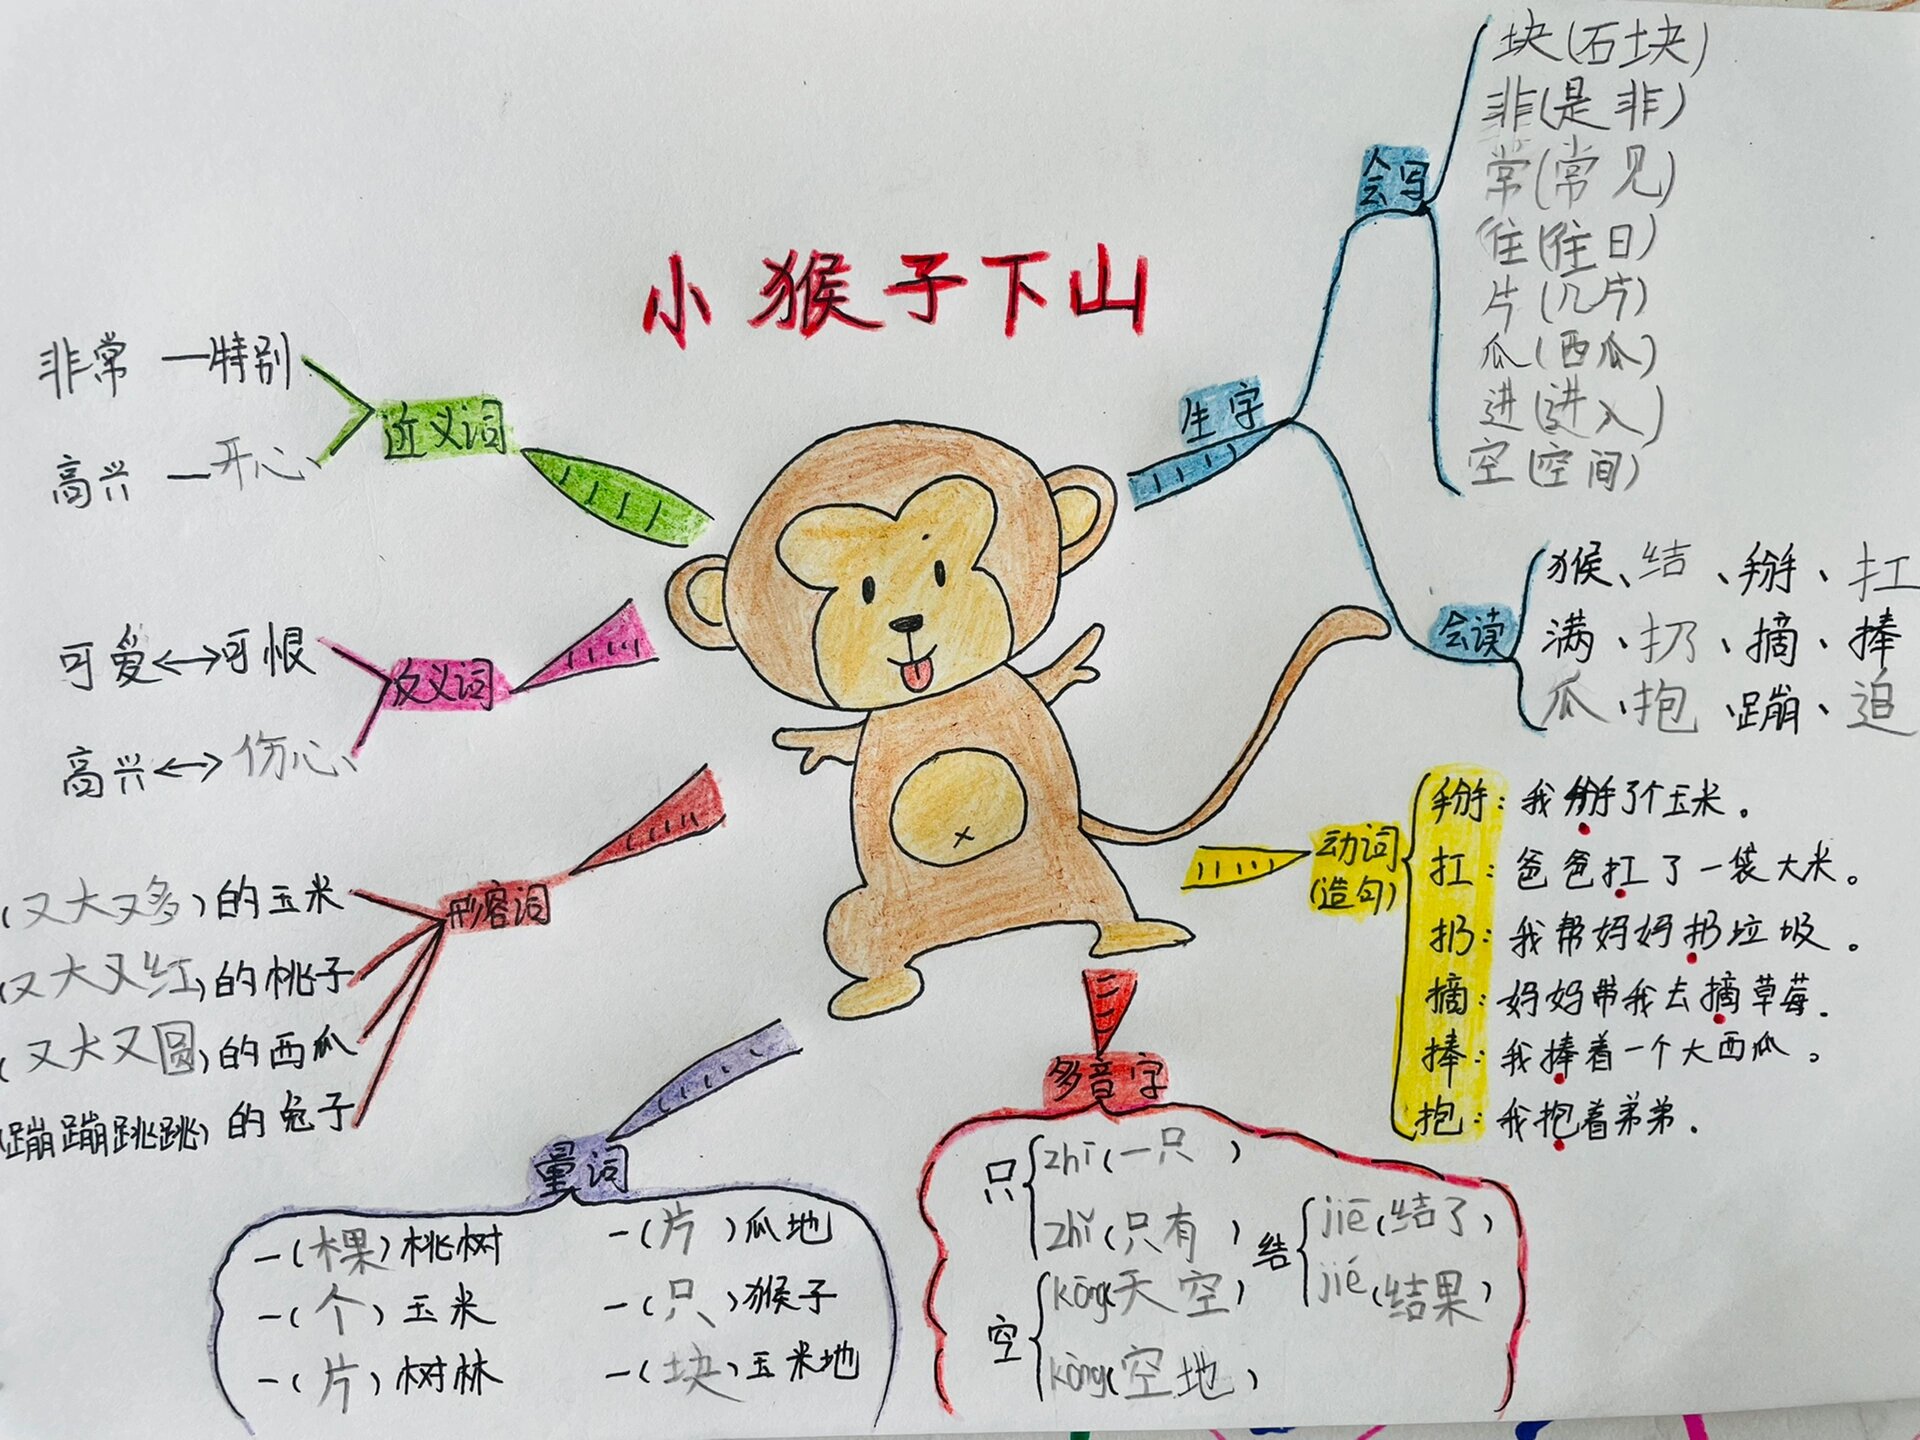 小猴子下山
近义词
非常—特别
高兴—开心
反义词
可爱↔可恨
高兴↔伤心
形容词
(又大又多)的玉米
(又大又红)的桃子
(又大又圆)的西瓜
(蹦蹦跳跳)的兔子
量词
一(棵)桃树
一(个)玉米
一(片)树林
一(片)瓜地
一(只)猴子
一(块)玉米地
多音字
只
zhī(一只)
zhǐ(只有)
空
kōng(天空)
kòng(空地)
结
jiē(结了)
jié(结果)
动词
(造句)
掰:我掰了个玉米。
扛:爸爸扛了一袋大米。
扔:我帮妈妈扔垃圾。
摘:妈妈带我去摘草莓。
捧:我捧着一个大西瓜。
抱:我抱着弟弟。
生字
会写
块(石块)
非(是非)
常(常见)
往(往日)
片(几片)
瓜(西瓜)
进(进入)
空(空间)
会读
猴、结、掰、扛
满、扔、摘、捧
瓜、抱、蹦、追